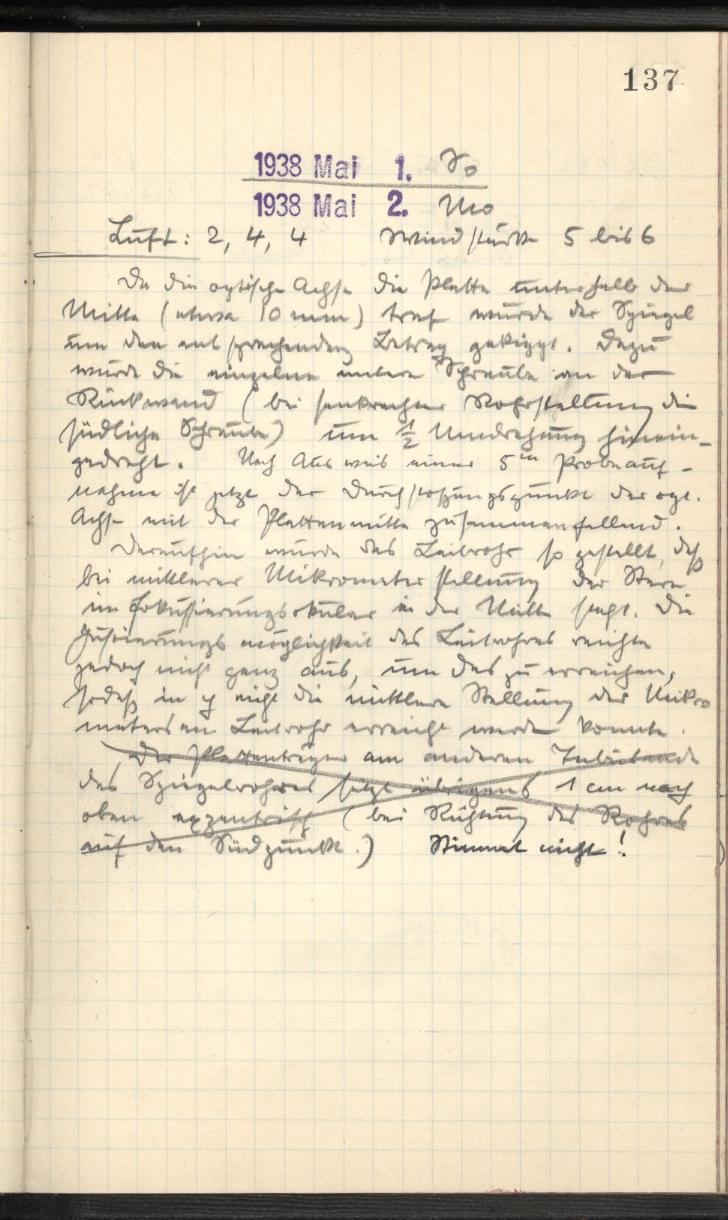 137
1938 Mai 1. So
1938 Mai 2. Mo
Luft: 2, 4, 4 Windstärke 5 bis 6
Da die optische Achse die Platte unterhalb der
Mitte (etwa 10 mm) traf wurde der Spiegel
um den entsprechenden Betrag gekippt. Dazu
wurde die einzelne untere Schraube an der
Rückwand (bei senkrechter Rohrstellung die
südliche Schraube) um 1/2 Umdrehung hinein-
gedreht. Nach Ausweis einer 5m Probeauf-
nahme ist jetzt der Durchstoßungspunkt der opt.
Achse mit der Plattenmitte zusammenfallend.
Daraufhin wurde das Leitrohr so gestellt, daß
bei mittlerer Mikrometerstellung der Stern
im Fokussierungsokular in der Mitte steht. Die
Justierungsmöglichkeit des Leitrohres reichte
jedoch nicht ganz aus, um das zu erreichen,
sodaß in y nicht die mittlere Stellung des Mikro
meters am Leitrohr erreicht werden konnte.
Der Plattenträger am anderen Tubusende
des Spiegelrohres sitzt übrigens 1 cm nach
oben exzentrisch (bei Richtung des Rohres
auf den Südpunkt.) Stimmt nicht!